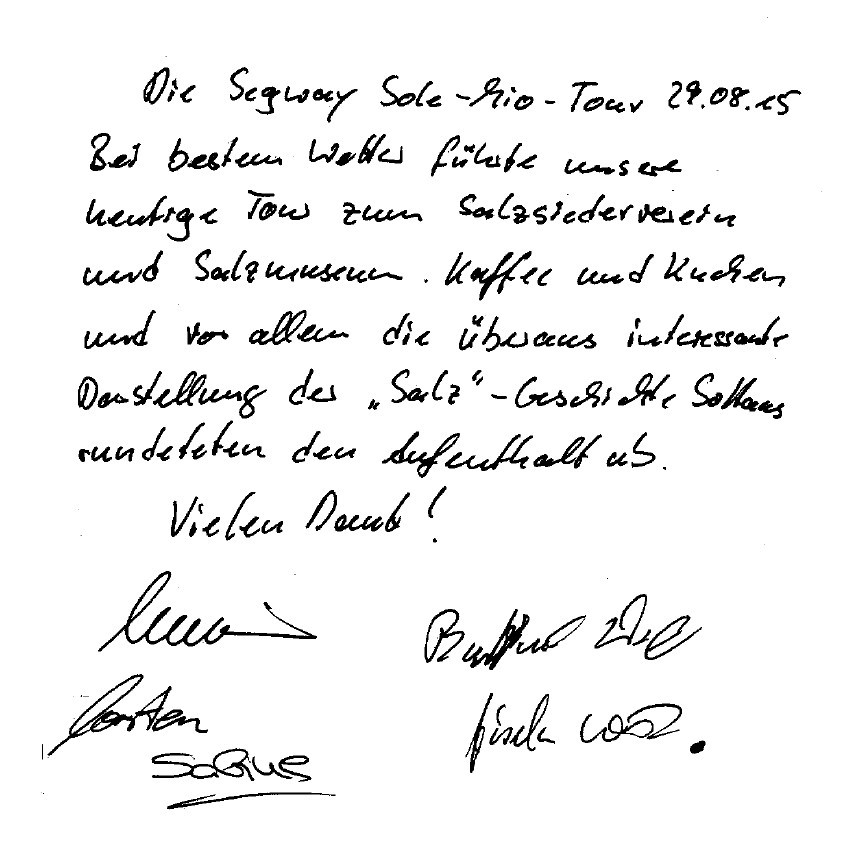 Die Segway Sole-Mio-Tour 29.08.15
Bei bestem Wetter führte unsere
heutige Tour zum Salzsiederverein
und Salzmuseum. Kaffee und Kuchen
und vor allem die überaus interessante
Darstellung der „Salz“-Geschichte Sülfaus
rundeteten den Aufenthalt ab.
Vielen Dank!
Carsten
Gisela
Sabine